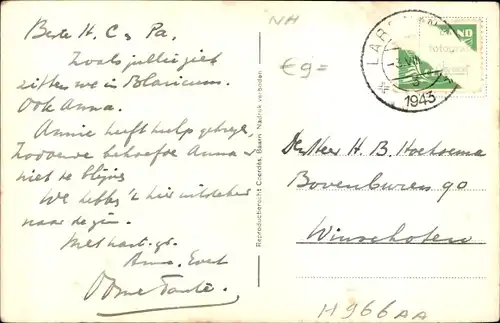 Beste H. C. Pa.
Zoals jullie ziet
zitten we in Blaricum.
Ook Anna.
Annie heeft hulp gekregen,
zoodoende behoefde Anna er
niet te blijven
We hebben 't hier uitstekend
naar de zin.
Met hart. gr.
Anna. Evert
Oome Tante.
Reproductierecht Coerdès, Baarn. Nadruk verboden
NH
€9=
LAR
1943
De Heer H. B. Hoeksema
Bovenburen 90
Winschoten
H966AA